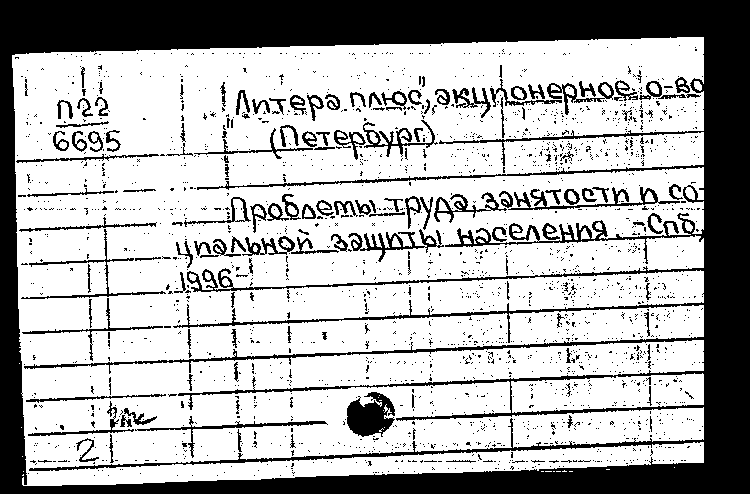 П22
6695
"Литера плюс", акционерное о-во
(Петербург)
Проблемы труда, занятости и со-
циальной защиты населения. - Спб,
1996 -
2